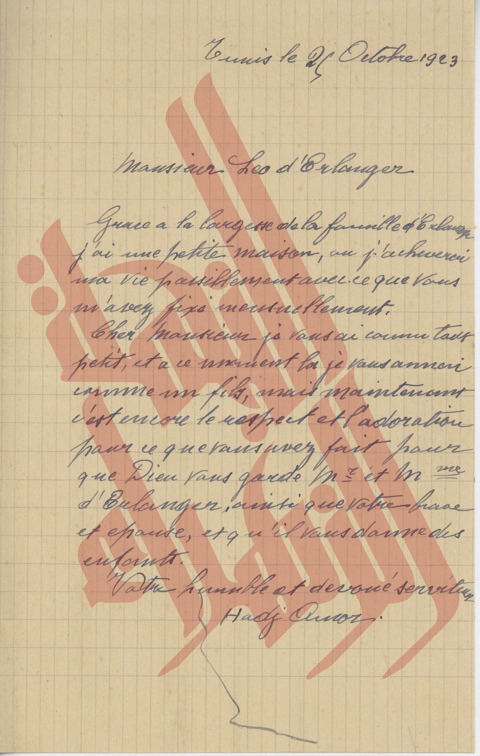 Tunis le 25 Octobre 1923
Monsieur Leo d'Erlanger
Grace a la largesse de la famille d'Erlanger
j'ai une petite maison, ou j'acheverai
ma vie paisillement avec ce que vous
m'avez fixé mensuellement.
Cher Monsieur je vous ai connu tout
petit, et a ce moment la je vous aimai
comme un fils, mais maintenant
c'est encore le respect et l'adoration
pour ce que vous avez fait pour
que Dieu vous garde Mr et Mme
d'Erlanger, ainsi que votre brave
et epouse, et qu'il vous donne des
enfants.
Votre humble et devoué serviteur
Hadj Amor.